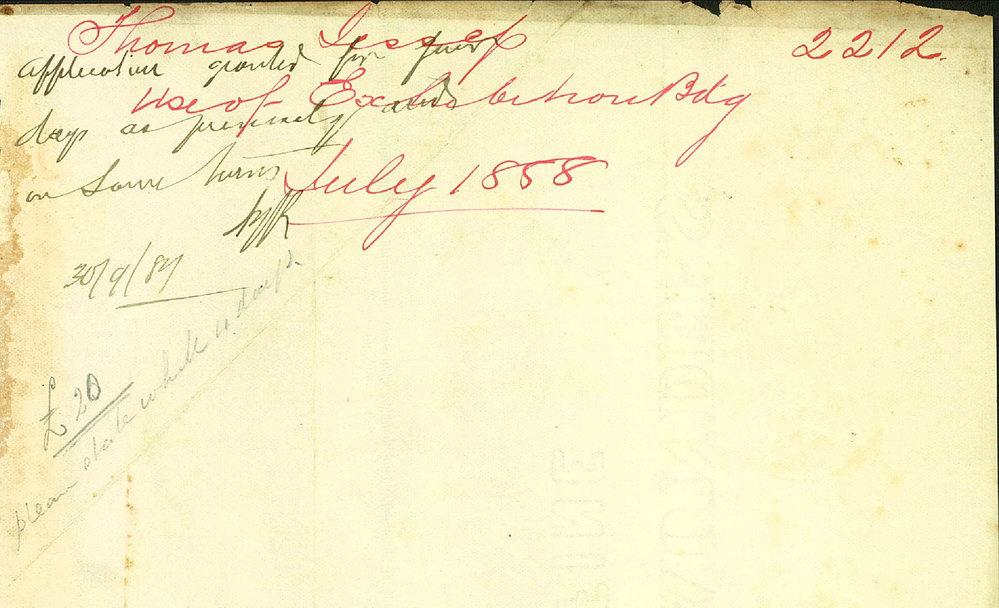 Thomas Jessep 2212.
application granted for four
Use of Exhibition Bdg
days as previously and
on same terms
July 1888
30/9/87
£20
please state which 4 days.